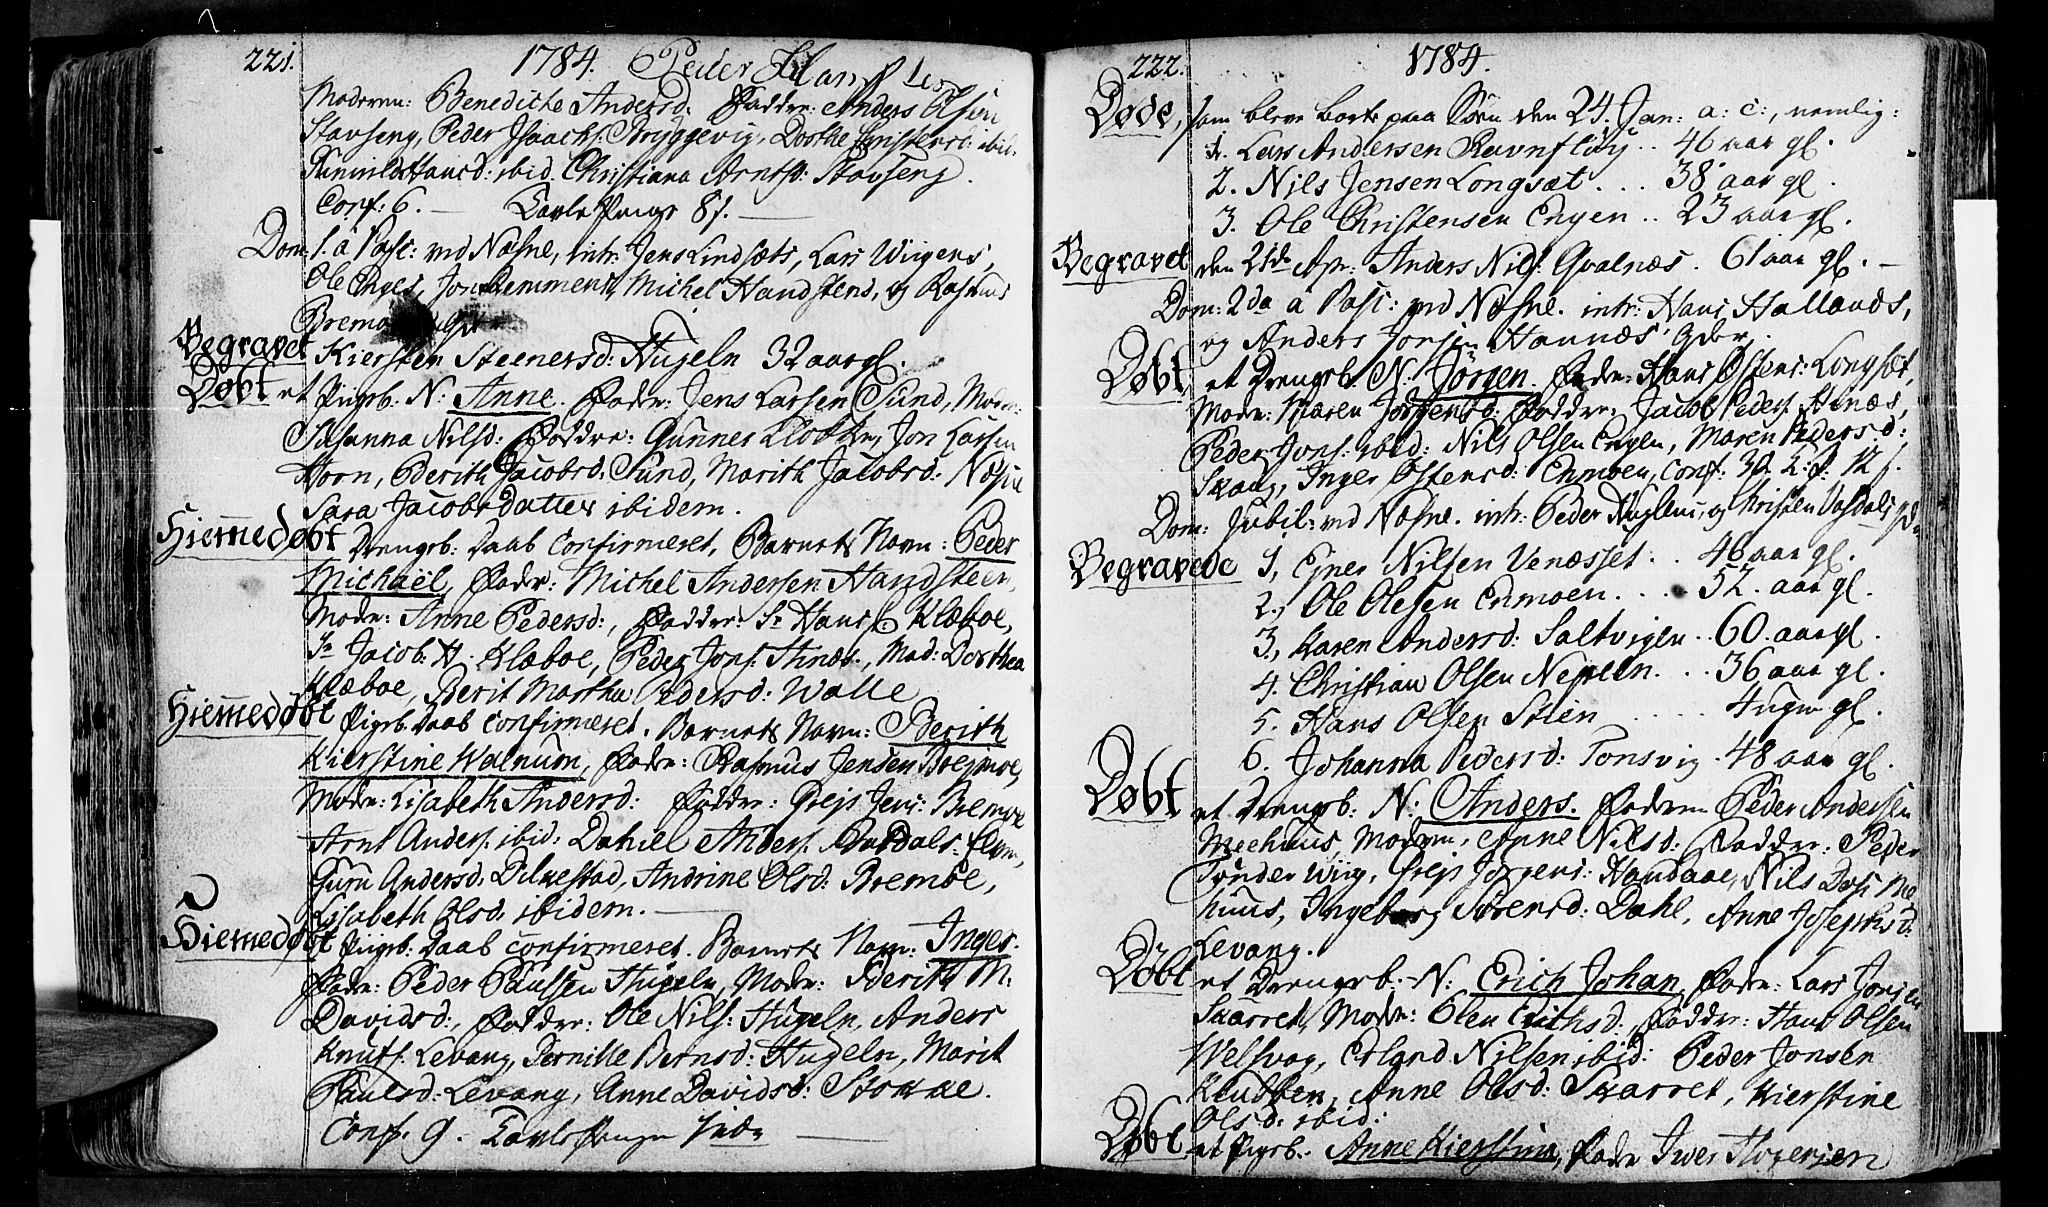 221.
1784.
Peder
Moderen: Benedicte Andersd: Faddre: Anders Olsen
Stavseng, Peder Isaachs: Bryggevig, Dorthe Christensd: ibid:
Gunnild Hansd: ibid. Christiana Arntsd: Stavseng.
Conf: 6. — Tavle Penge 8 s. —
Dom: 1. a Pasc: ved Næsne, intr: Jens Lindsæts, Lars Wiigens,
Ole Enges, Jon Remmens, Michel Handstens, og Rasmus
Bremo
Begravet Kiersten Steenersd: Hugeln 32 aar gl.
Døbt et Pigeb: N: Anne. Fader: Jens Larsen Sund, Moder:
Susanna Nilsd: Faddre: Gunner Klokker, Jon Larsen
Horn, Berith Jacobsd: Sund, Marith Jacobsd: Næsne
Sara Jacobsdatter ibidem.
Hiemmedøbt Drengeb: Daab confirmeret, Barnets Navn: Peder
Michaël, Fader: Michel Andersen Handsteen,
Moder: Anne Pedersd:, Faddre: Sr Hans Klæboe,
Sr Jacob H. Klæboe, Peder Jons: Alnæs, Mad: Dorthea
Klæboe, Berit Martha Pedersd: Walle
Hiemmedøbt Pigeb. Daab confirmeret. Barnets Navn: Berith
Kierstine Walnum, Fader: Rasmus Jensen Bremoe,
Moder: Lisabeth Andersd: Faddre: Grejs Jens: Bremoe
Arnt Anders: ibid: Daniel Anders:
Guru Andersd: Dilkestad, Andrine Olsd: Bremoe,
Lisabeth Olsd: ibidem. —
Hiemedøbt Pigeb: Daab confirmeret. Barnets Navn: Inger.
Fader: Peder Paulsen Hugeln, Moder: Berith M.
Davidsd:, Faddre: Ole Nils: Hugeln, Anders
Knuts: Levang, Pernille Bernsd: Hugeln, Marit
Paulsd: Levang, Anne Davidsd: Stokke.
Conf: 9. Tavle Penge —
222.
1784.
Døde, som bleve borte paa Søen den 24. Jan: a: c:, nemlig:
1. Lars Andersen Ravnfløy .. 46 aar gl.
2. Nils Jensen Longsæt . . . 38 aar gl.
3. Ole Christensen Engen .. 23 aar gl.
Begravet den 21de Apr: Anders Nils: Qvalnæs. 61 aar gl. —
Dom: 2da a Pasc: ved Næsne. intr: Hans Hallands,
og Anders Jonsen Hannæs'
Døbt et Drengeb: N: Jörgen. Fader: Hans Østens: Longsæt,
Moder: Maren Jörgensd: Faddre: Jacob Peders: Alnæs,
Peder Jons: ibid: Nils Olsen Engen, Maren Pedersd:
Skaug, Inger Østensd: Enmoen, Conf: 30. T: P: 12 s.
Dom: Jubil: ved Næsne. intr: Peder Huglens, og Christen
Begravede 1, Ejner Nilsen Venæsset . . 46 aar gl.
2., Ole Olesen Enmoen . . . . 52. aar gl.
3., Karen Andersd: Saltvigen . . 60. aar gl.
4. Christian Olsen Nepeln . . . 36 aar gl.
5. Hans Olsen Stien . . . . . 4 uger gl.
6. Johanna Pedersd: Tonsvig . 48 aar gl.
Døbt et Drengeb: N: Anders. Faderen Peder Andersen
Meehuus, Moderen, Anne Nilsd: Faddre: Peder
Tønder Wiig, Grejs Jörgens: Handaae, Nils Me
huus, Ingeborg Sørensd: Dahl, Anne Josephsd:
Levang.
Døbt et Drengeb.— N: Erich Johan, Fader: Lars Jonsen
Skarret, Moder: Elen Erichsd:, Faddre: Hans Olsen
Welsvog, Erland Nilsen ibid: Peder Jonsen
Klubben, Anne Olsd: Skarret, Kierstine
Olsd: ibid:
Døbt et Pigeb: Anne Kierstina, Fader Iver